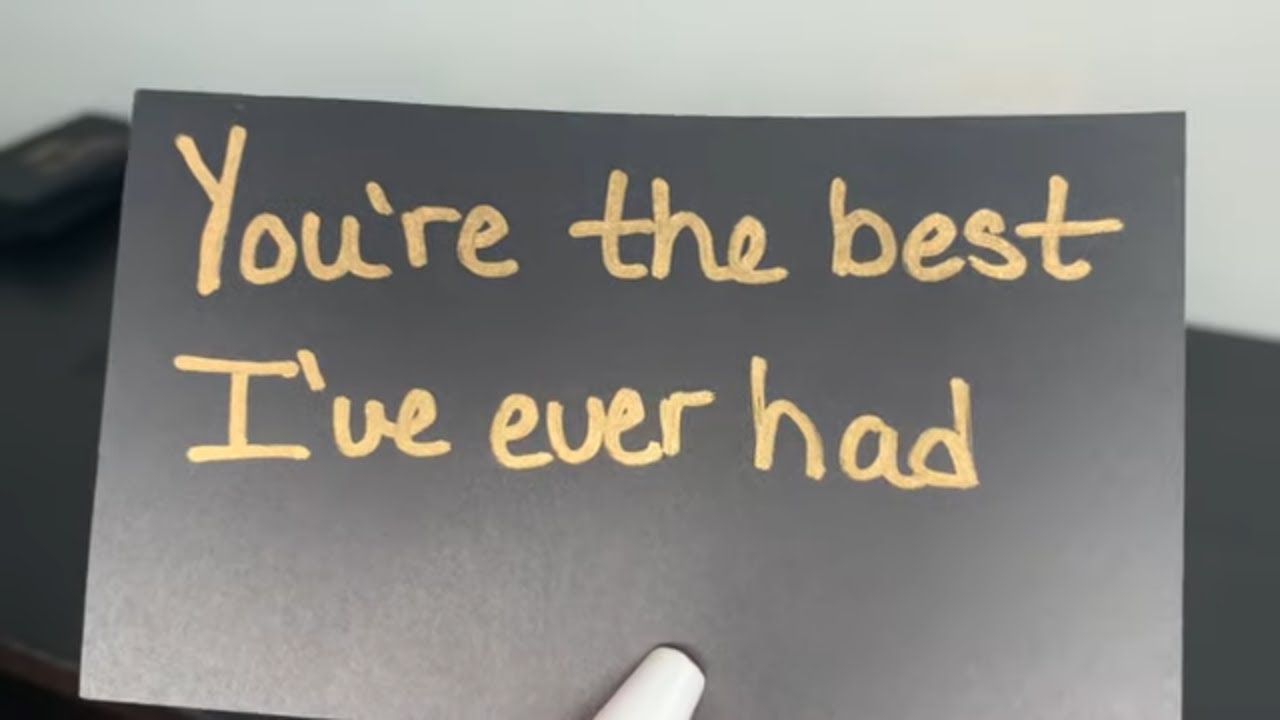 You're the best
I've ever had